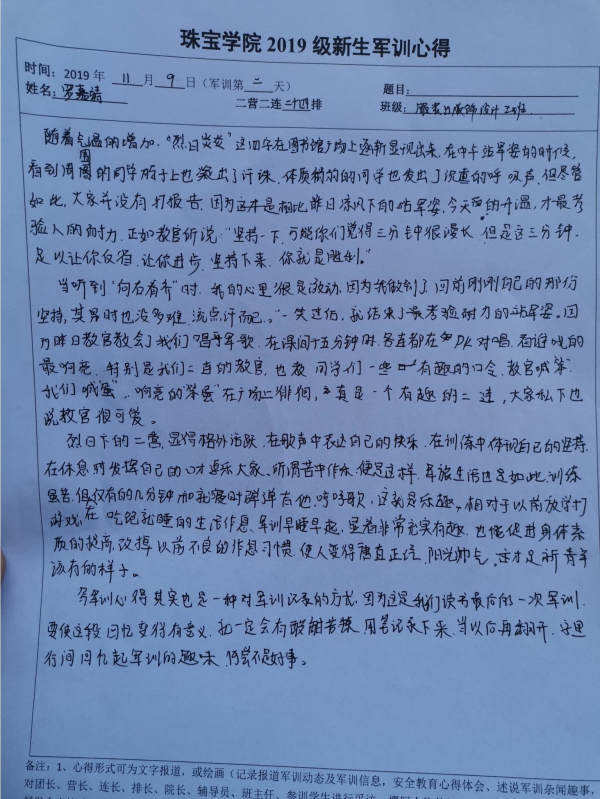 珠宝学院 2019 级新生军训心得
时间：2019 年 11 月 9 日（军训第 二 天） 题目：
姓名： 二营二连二十四排 班级：服装与服饰设计
随着气温的增加，“烈日炎炎”这四字在图书馆广场上逐渐显现出来，在中午站军姿的时候，
看到周围的同学脖子上也激出了汗珠，体质稍弱的同学也发出了沉重的呼吸声，但尽管
如此，大家并没有打报告，因为这本是相比昨日凉风下的站军姿，今天的升温，才最考
验人的耐力，正如教官所说：“坚持一下，可能你们觉得三分钟很漫长，但是这三分钟，
足以让你反省，让你进步，坚持下来，你就是胜利。”
当听到“向右看齐”时，我的心里很是激动，因为我做到了，回首刚刚自己的那份
坚持，其实时也没多难，流点汗而已。一笑过后，就结束了最考验耐力的站军姿。因
为昨日教官教会了我们唱军歌，在课间十五分钟时，各连都在PK对唱，看谁唱的
最响亮，特别是我们二连的教官，也教同学们一些有趣的口令，教官喊“荣”
我们喊“蛋”，响亮的“荣蛋”在广场上徘徊，真是一个有趣的二连，大家私下也
说教官很可爱。
烈日下的二营，显得格外活跃，在歌声中表达自己的快乐，在训练中体现自己的坚持，
在休息时发挥自己的口才逗乐大家，所谓苦中作乐，便是这样，军旅生活也是如此，训练
虽苦，但仅有的几分钟加就寝时弹弹吉他，哼哼歌，这就是乐趣。相对于以前放学打
游戏，在吃吃就睡的生活作息，军训早睡早起，显着非常充实有趣，也能促进身体素
质的提高，改掉以前不良的作息习惯，使人变得廉直正统，阳光帅气，这才是新青年
该有的样子。
写军训心得其实也是一种对军训记录的方式，因为这是我们读书最后的一次军训，
要使这段回忆变得有意义，一定会有酸甜苦辣，用笔记录下来，当以后再翻开，字里
行间回忆起军训的趣味，何尝不是好事。
备注：1、心得形式可为文字报道，或绘画（记录报道军训动态及军训信息，安全教育心得体会、述说军训杂闻趣事，
对团长、营长、连长、排长、院长、辅导员、班主任、参训学生进行采访